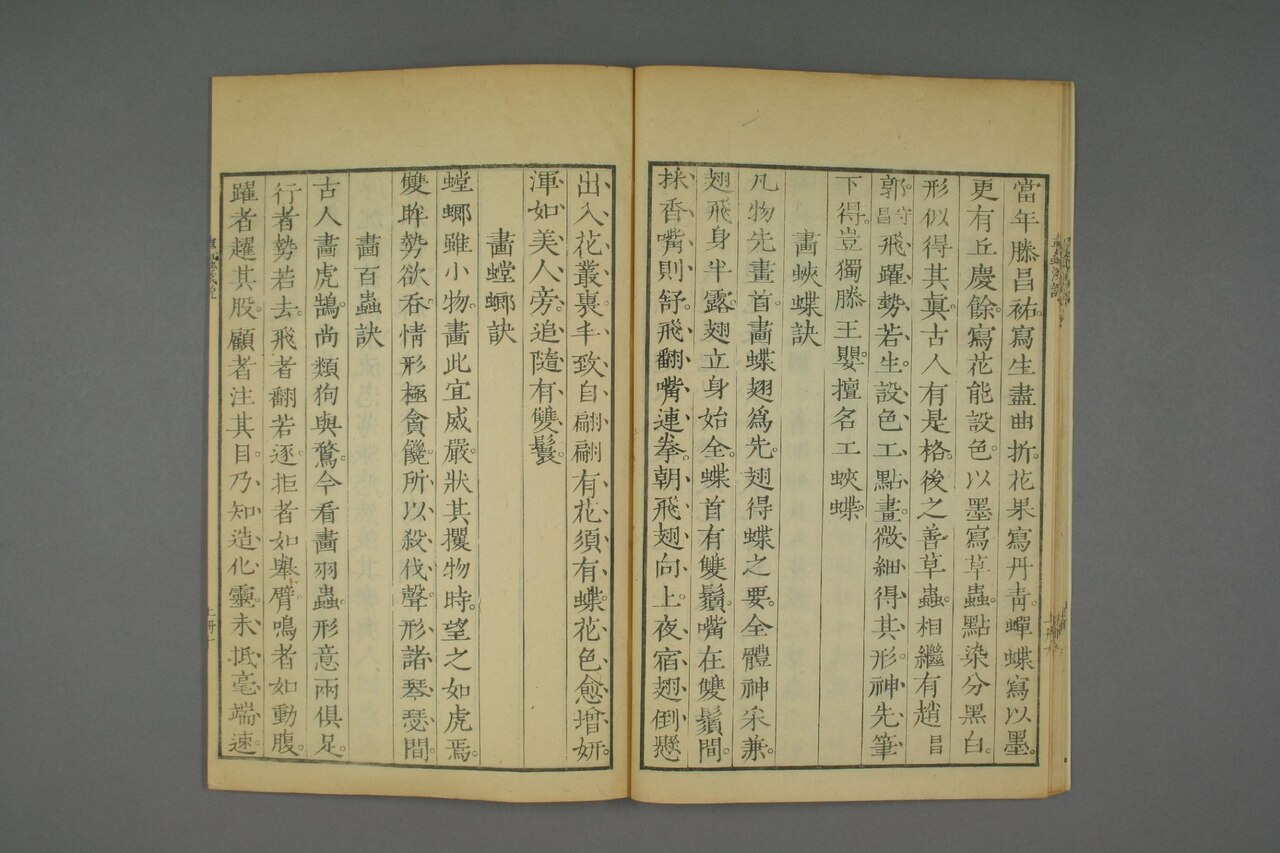 當年滕昌祐。寫生盡曲折。花果寫丹靑。蟬蝶寫以墨。
更有丘慶餘。寫花能設色。以墨寫草蟲。點染分黑白。
形似得其眞。古人有是格。後之善草蟲。相繼有趙昌
郭守昌。飛躍勢若生。設色工點畫。微細得其形。神先筆
下得。豈獨滕王嬰。擅名工蛺蝶。
畫蛺蝶訣
凡物先畫首。畫蝶翅爲先。翅得蝶之要。全體神采兼。
翅飛身半露。翅立身始全。蝶首有雙鬚。嘴在雙鬚間。
採香嘴則舒。飛翻嘴連拳。朝飛翅向上。夜宿翅倒懸
出入花叢裏。丰致自翩翩。有花須有蝶。花色愈增妍。
渾如美人旁。追隨有雙鬟。
畫螳螂訣
螳螂雖小物。畫此宜威嚴。狀其攫物時。望之如虎焉。
雙眸勢欲吞。情形極貪饞。所以殺伐聲。形諸琴瑟間。
畫百蟲訣
古人畫虎鵠。尚類狗與鶩。今看畫羽蟲。形意兩俱足。
行者勢若去。飛者翻若逐。拒者如舉臂。鳴者如動腹。
躍者趯其股。顧者注其目。乃知造化靈。未抵毫端速。